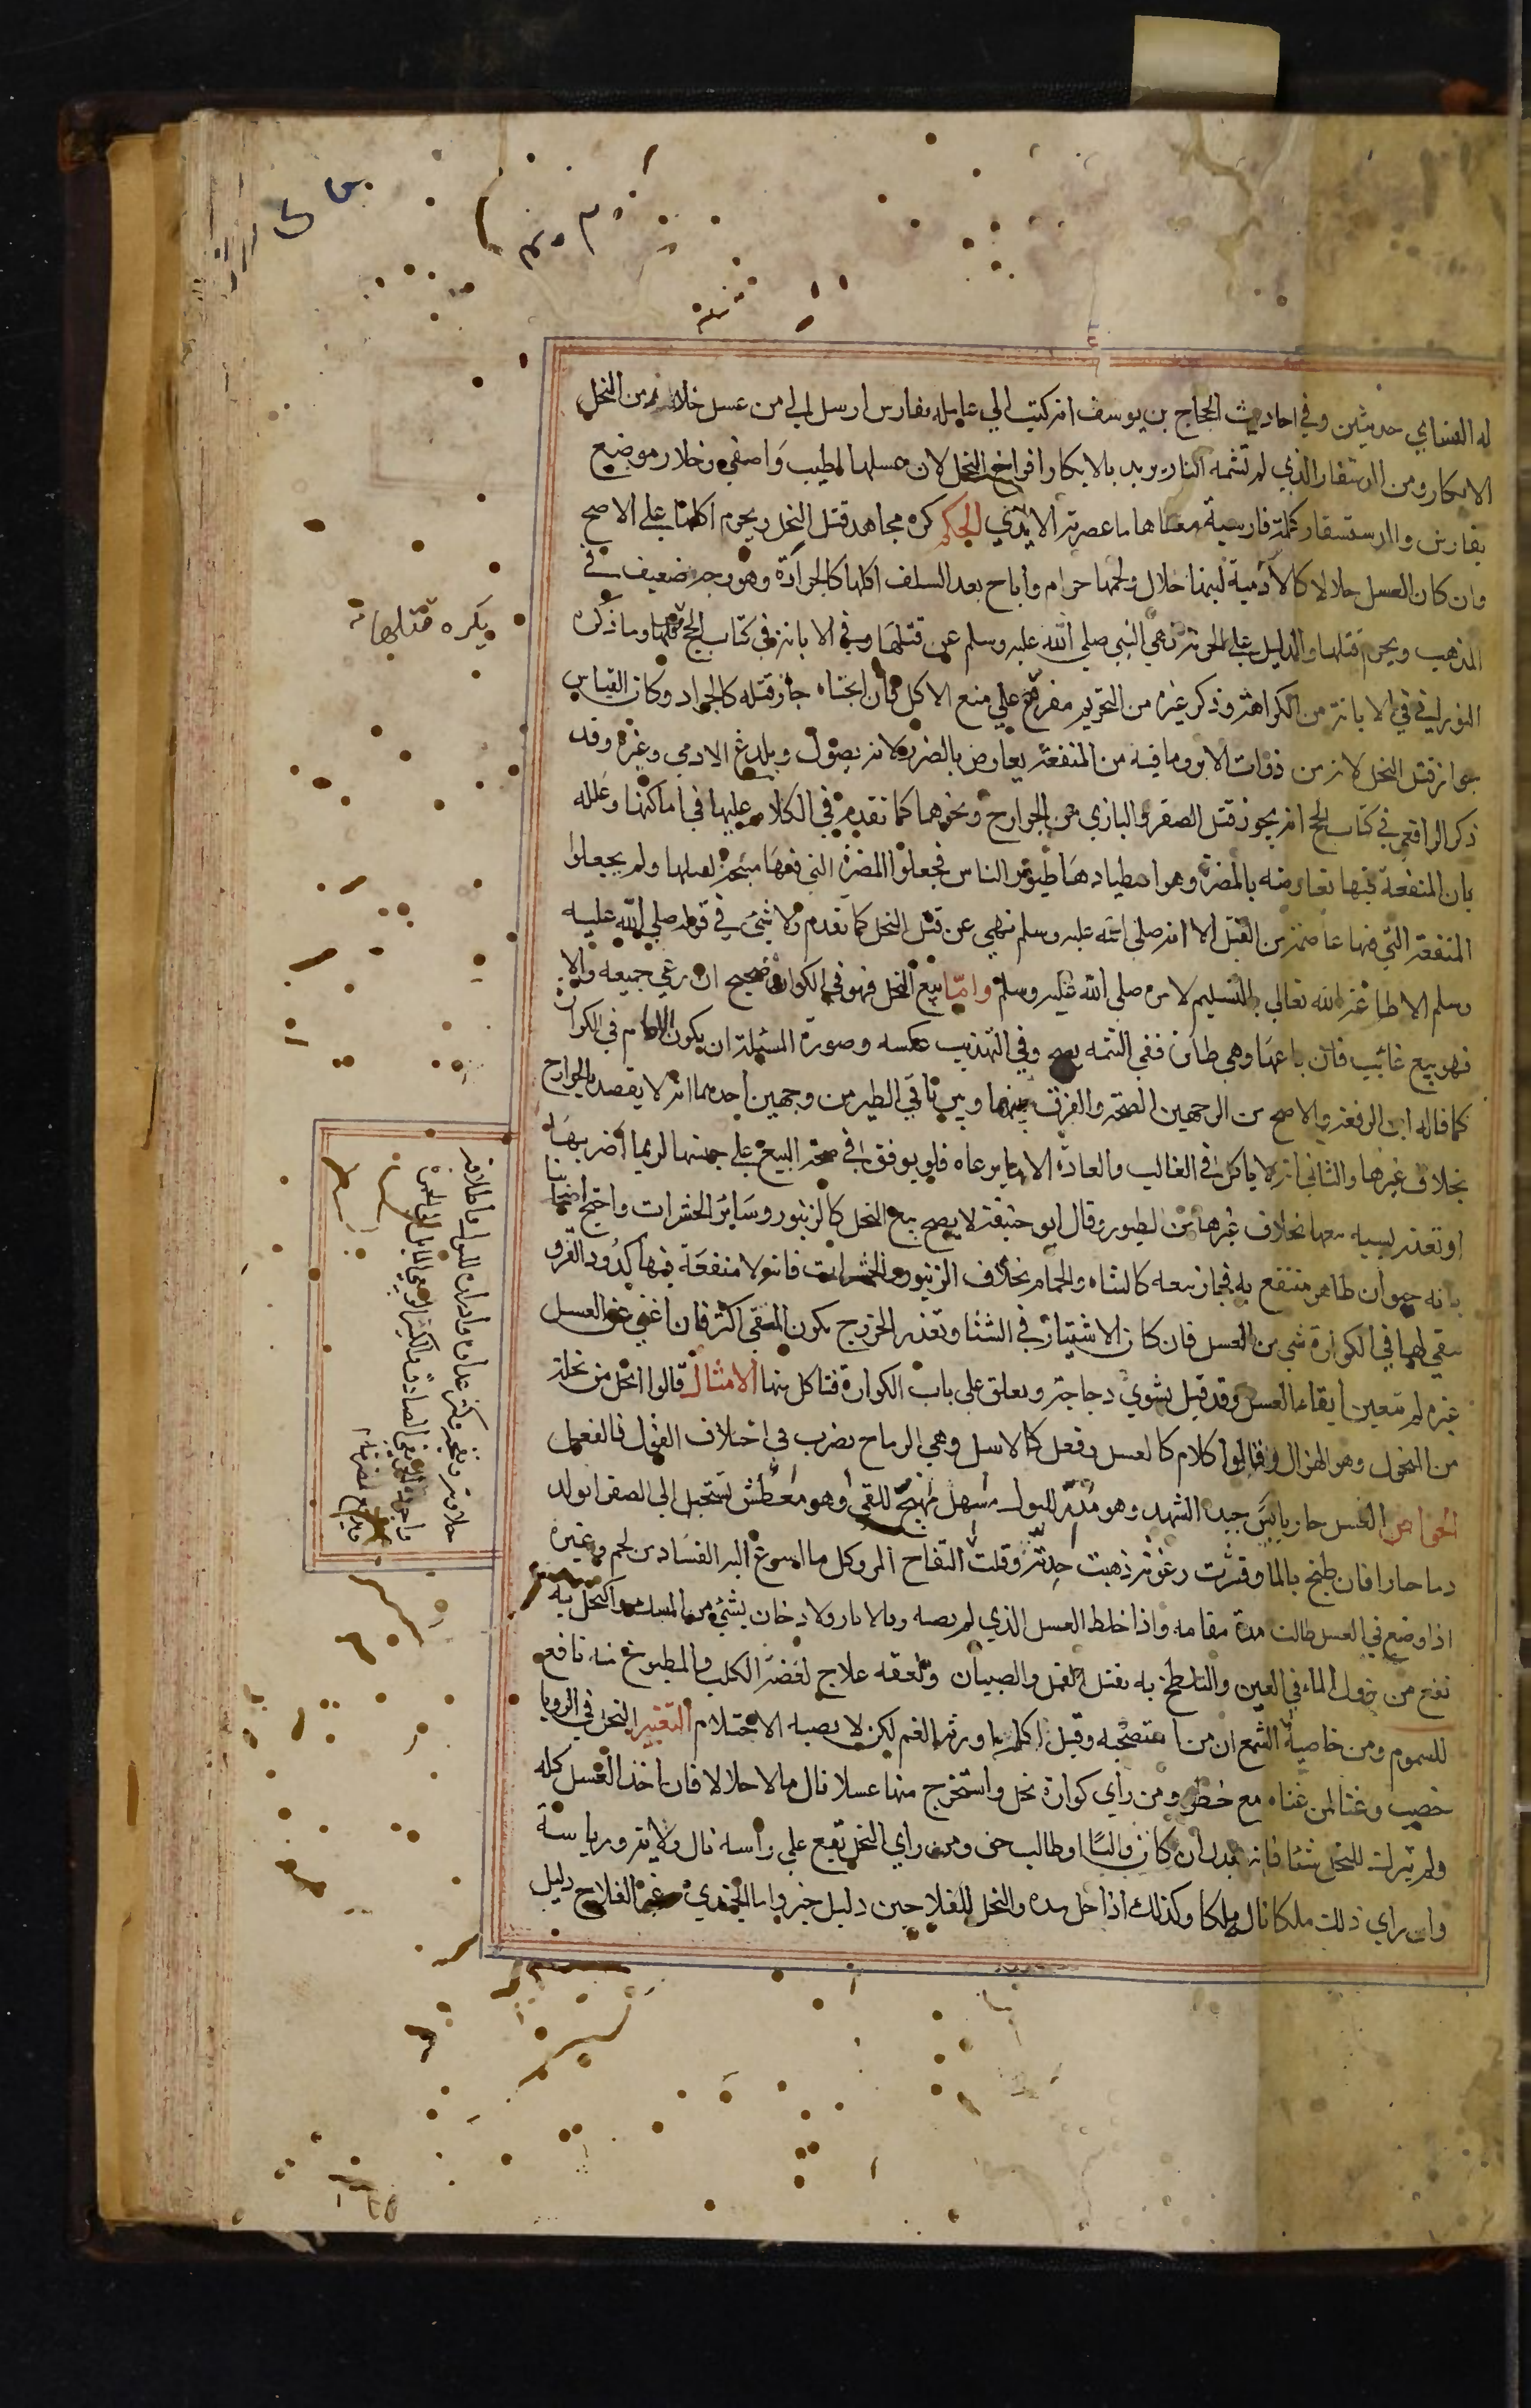 له النسابي حديثين وفي احاديث الحجاج بن يوسف انه كتب الي عامله بفارس ارسل لي من عسل خلار من النحل
الابكار ومن الدستفشار الذي لم تمسه النار يريد بالابكار افراخ النحل لان عسلها اطيب واصفى وخلار موضع
بفارس والدستفشار كلمة فارسية معناها ما عصرته الايدي الحكم كره مجاهد قتل النحل ويحرم اكلها على الاصح
وان كان العسل حلالا كالآدمية لبنها حلال ولحمها حرام واباح بعض السلف اكلها كالجرادة وهو وجه ضعيف في
المذهب ويحرم قتلها والدليل على الحرمة نهي النبي صلى الله عليه وسلم عن قتلها وفي الابانة في كتاب الحج قتلها وما ذكره
الفوراني في الابانة من الكراهة وذكر غيره من التحريم مفرع علي منع الاكل فان ابحناه جاز قتله كالجراد وكان القياس
جواز قتل النحل لانه من ذوات الابر وما فيه من المنفعة يعارض بالضرر لانه يصول ويلدغ الادمي وغيره وقد
ذكر الرافعي في كتاب الحج انه يجوز قتل الصقر والبازي من الجوارح ونحوهما كما تقدم في الكلام عليها في اماكنها وعلله
بان المنفعة فيها تعارضه بالمضرة وهو اصطيادها طيور الناس فجعلوا المضرة التي فيها مبيحة لقتلها ولم يجعلوا
المنفعة التي فيها عاصمة من القتل الا انه صلى الله عليه وسلم نهي عن قتل النحل كما تقدم ولا شئ في قوله صلى الله عليه
وسلم الا طاعة الله تعالى بالتسليم لامره صلى الله عليه وسلم واما بيع النحل فهو في الكوارة صحيح ان رئي جميعه والا
فهو بيع غائب فان باعها وهي طائرة ففي التتمة يصح وفي التهذيب عكسه وصورة المسئلة ان يكون الام في الكوارة
كما قاله ابن الرفعة والاصح من الوجهين الصحة والفرق بينها وبين باقي الطير من وجهين احدهما انه لا يقصد بالجوارح
بخلاف غيرها والثاني انه لا ياكل في الغالب والعادة الا مما يرعاه فلو يوقف في صحة البيع على حبسها لربما اضر بها
او تعذر بسببه بيعها بخلاف غيرها من الطيور وقال ابو حنيفة لا يصح بيع النحل كالزنبور وساير الحشرات واحتج اصحابنا
بانه حيوان طاهر منتفع به فجاز بيعه كالشاه والحمام بخلاف الزنبور والحشرات فانه لا منفعة فيها كدود القز و
يبقي لها في الكوارة شي من العسل فان كان الاشتيار في الشتا وتعذر الخروج يكون المبقي اكثر فان اغني عن العسل
غيره لم يتعين ابقاء العسل وقد قيل يشوي دجاجة ويعلق على باب الكوارة فتاكل منها الامثال قالوا انحل من نحلة
من النحول وهو الهزال وقالوا كلام كالعسل وفعل كالاسل وهي الرماح يضرب في اختلاف القول والفعل
الخواص العسل حار يابس جيده الشهد وهو مدر للبول مسهل مهيج للقئ وهو معطش تستحيل الى الصفرا يولد
دما حارا فان طبخ بالما ونزعت رغوته ذهبت حدته وقلت التفاح المر وكل ما اسرع اليه الفساد من لحم وغيره
اذا وضع في العسل طالت مدة مقامه واذا خلط العسل الذي لم يصبه ما ولا نار ولا دخان بشئ من المسك واكتحل به
نفع من نزول الماء في العين والتلطخ به يقتل القمل والصيبان ولعقه علاج لعضة الكلب والمطبوخ منه نافع
للسموم ومن خاصية الشمع ان من استصحبه وقيل اكله يورثه الغم لكن لا يصيبه الاحتلام التعبير النحل في الرويا
خصب وغنا لمن غناه مع خطر ومن راي كوارة نحل واستخرج منها عسلا نال مالا حلالا فان اخذ العسل كله
ولم يترك للنحل شئا فانه يعدل ان كان واليا او طالب حق ومن راي النحل تقع على راسه نال ولاية ورياسة
وان راي ذلك ملكا نال ملكا وكذلك اذا حل بيده والنحل للفلاحين دليل خير واما الجندي وغير الفلاح دليل
يكره قتلها